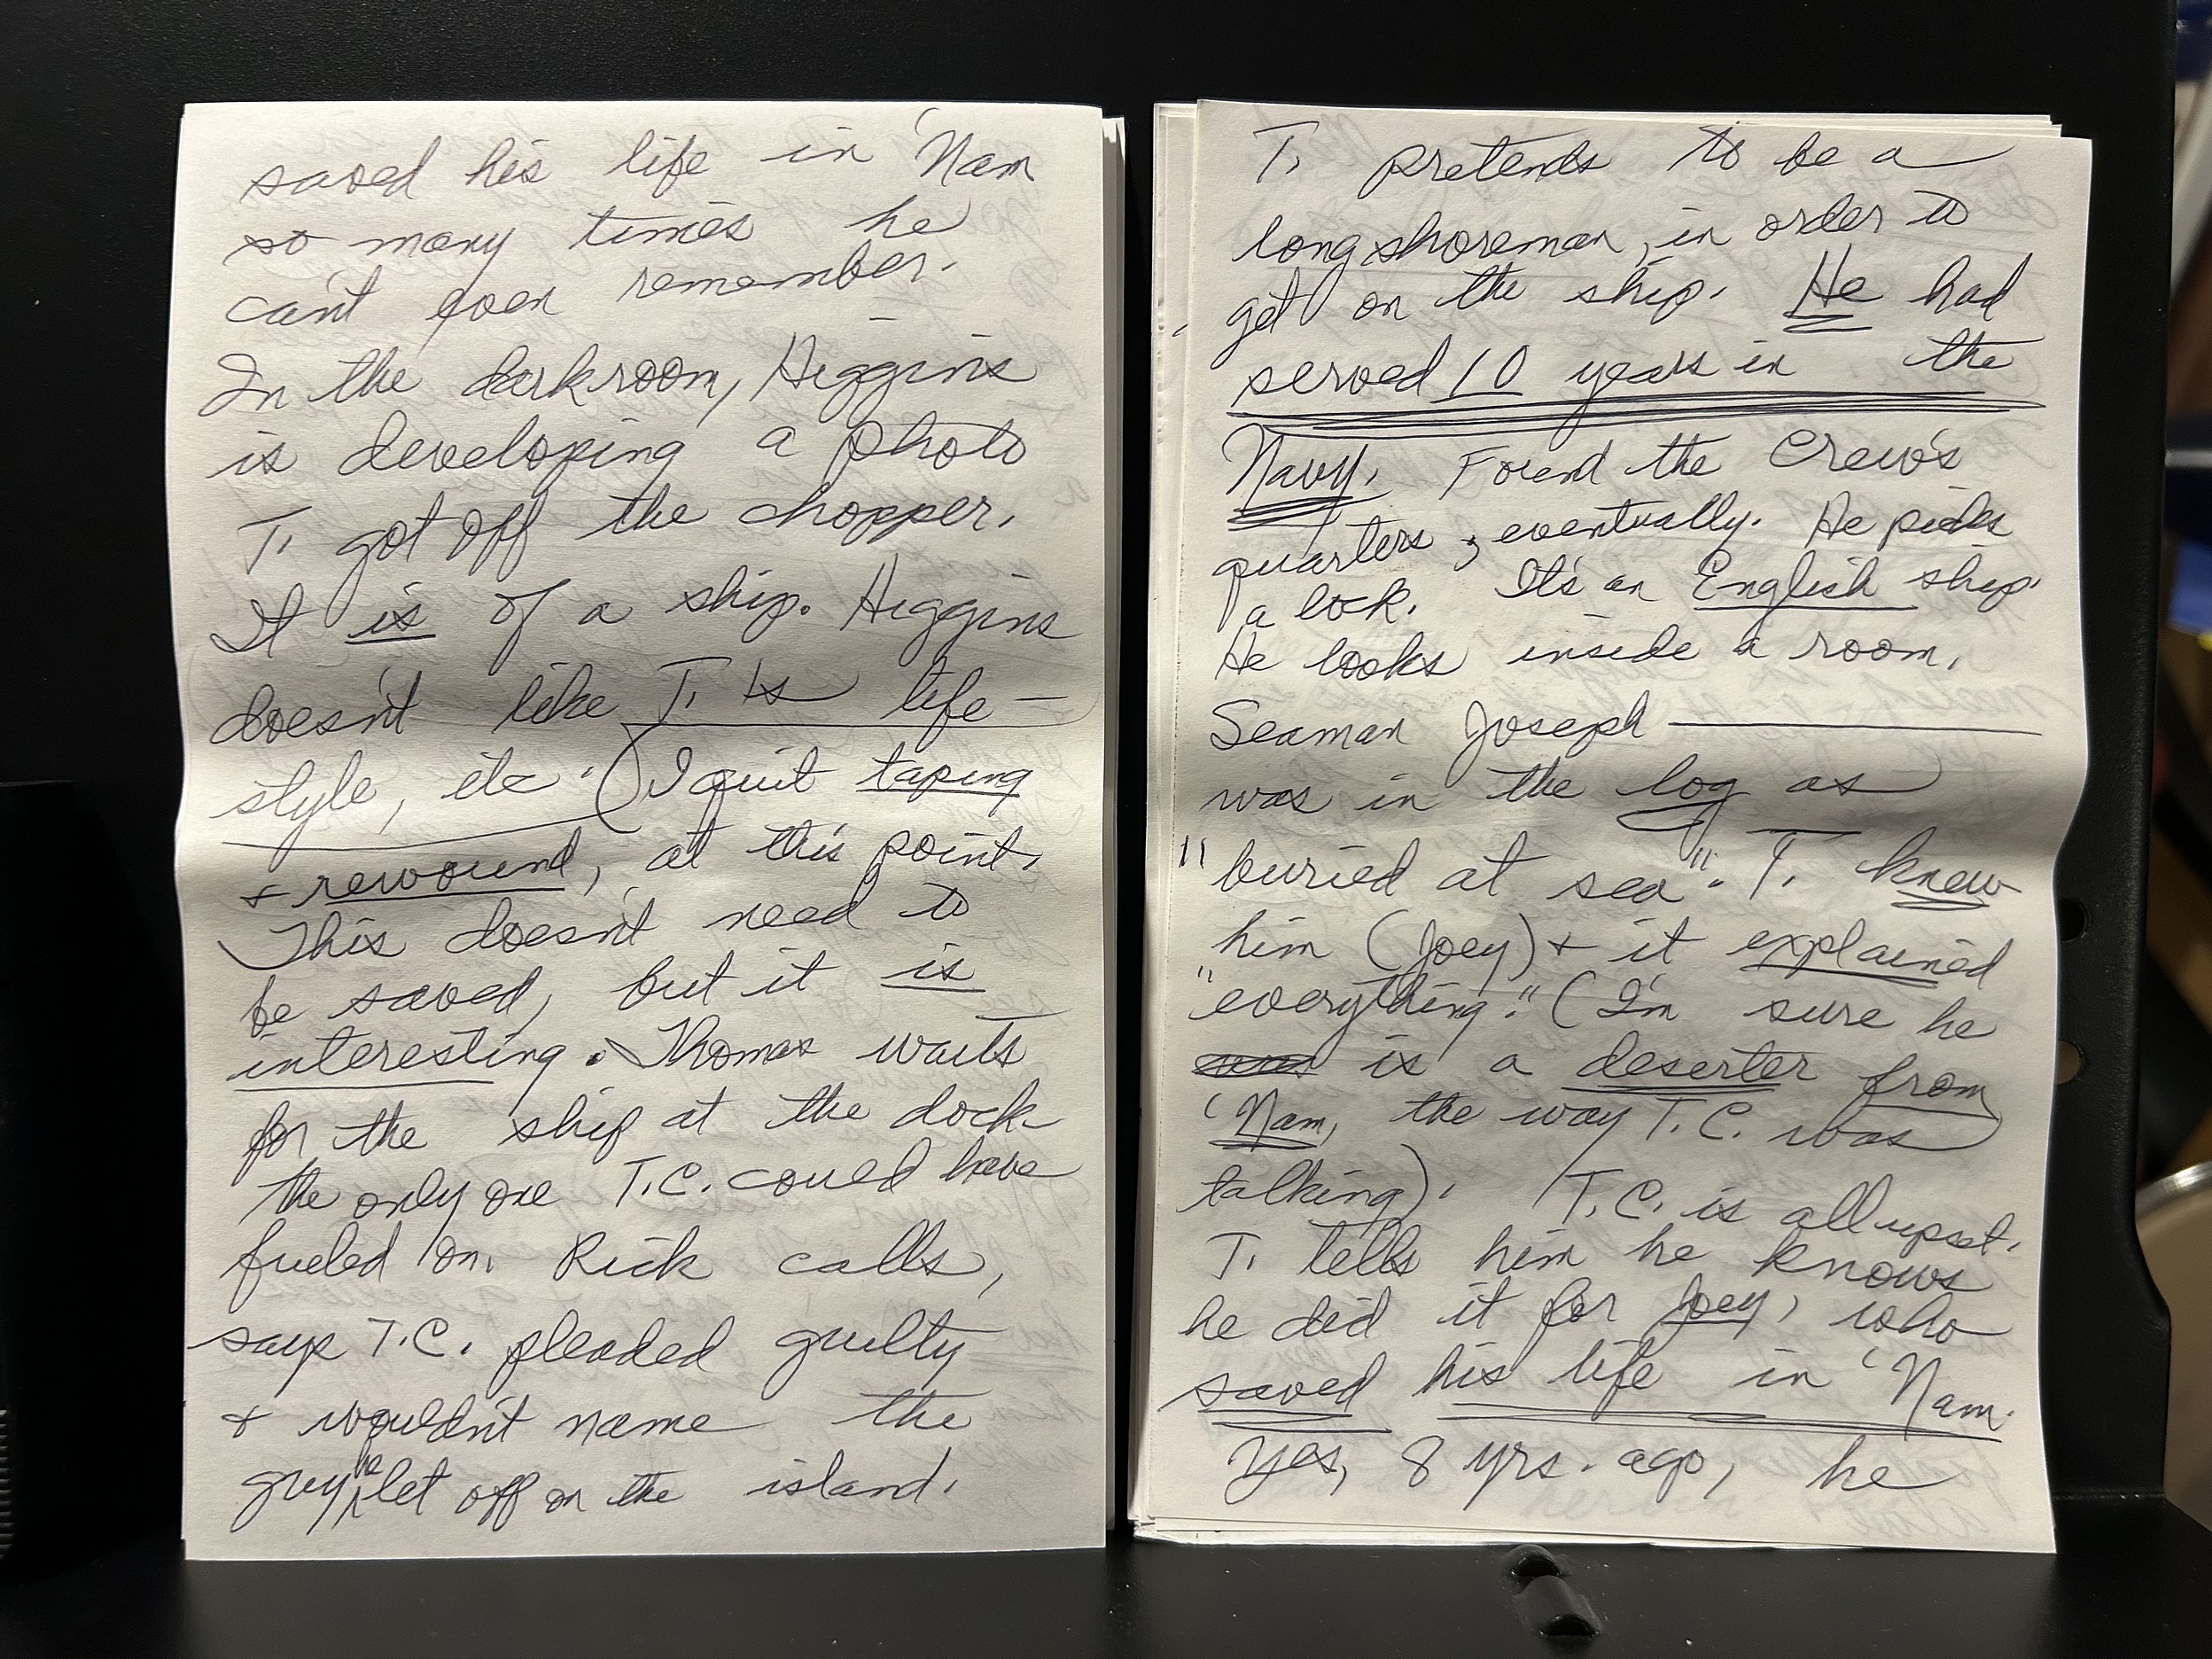 saved his life in 'Nam
so many times he
can't even remember.
In the darkroom, Higgins
is developing a photo
T. got off the chopper.
It is of a ship. Higgins
doesn't like T.'s life-
style, etc. (I quit taping
+ rewound, at this point.
This doesn't need to
be saved, but it is
interesting. Thomas waits
for the ship at the dock -
the only one T.C. could have
fueled on. Rick calls,
says T.C. pleaded guilty
+ wouldn't name the
guy he let off on the island.
T. pretends to be a
longshoreman, in order to
get on the ship. He had
served 10 years in the
Navy. Found the crew's
quarters, eventually. He picks
a lock. It's an English ship.
He looks inside a room.
Seaman Joseph ———
was in the log as
"buried at sea". T. knew
him (Joey) + it explained
"everything." (I'm sure he
is a deserter from
'Nam, the way T.C. was
talking). T.C. is all upset.
T. tells him he knows
he did it for Joey, who
saved his life in 'Nam.
Yes, 8 yrs. ago, he